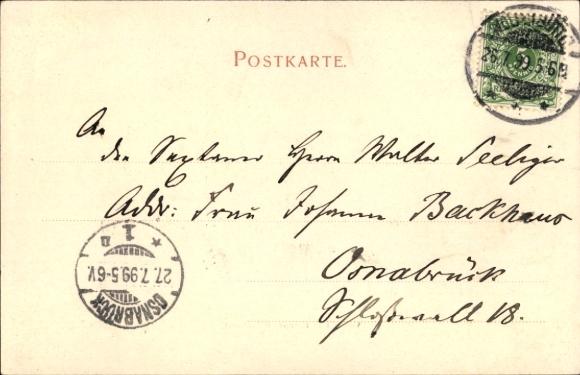 POSTKARTE.
26.7.99.5-6N.
An
den Sextaner Herrn Walter Seeliger
Addr: Frau Johanna Backhaus
Osnabrück
Schloßwall 18.
OSNABRÜCK
27.7.99.5-6V.
* 1 n